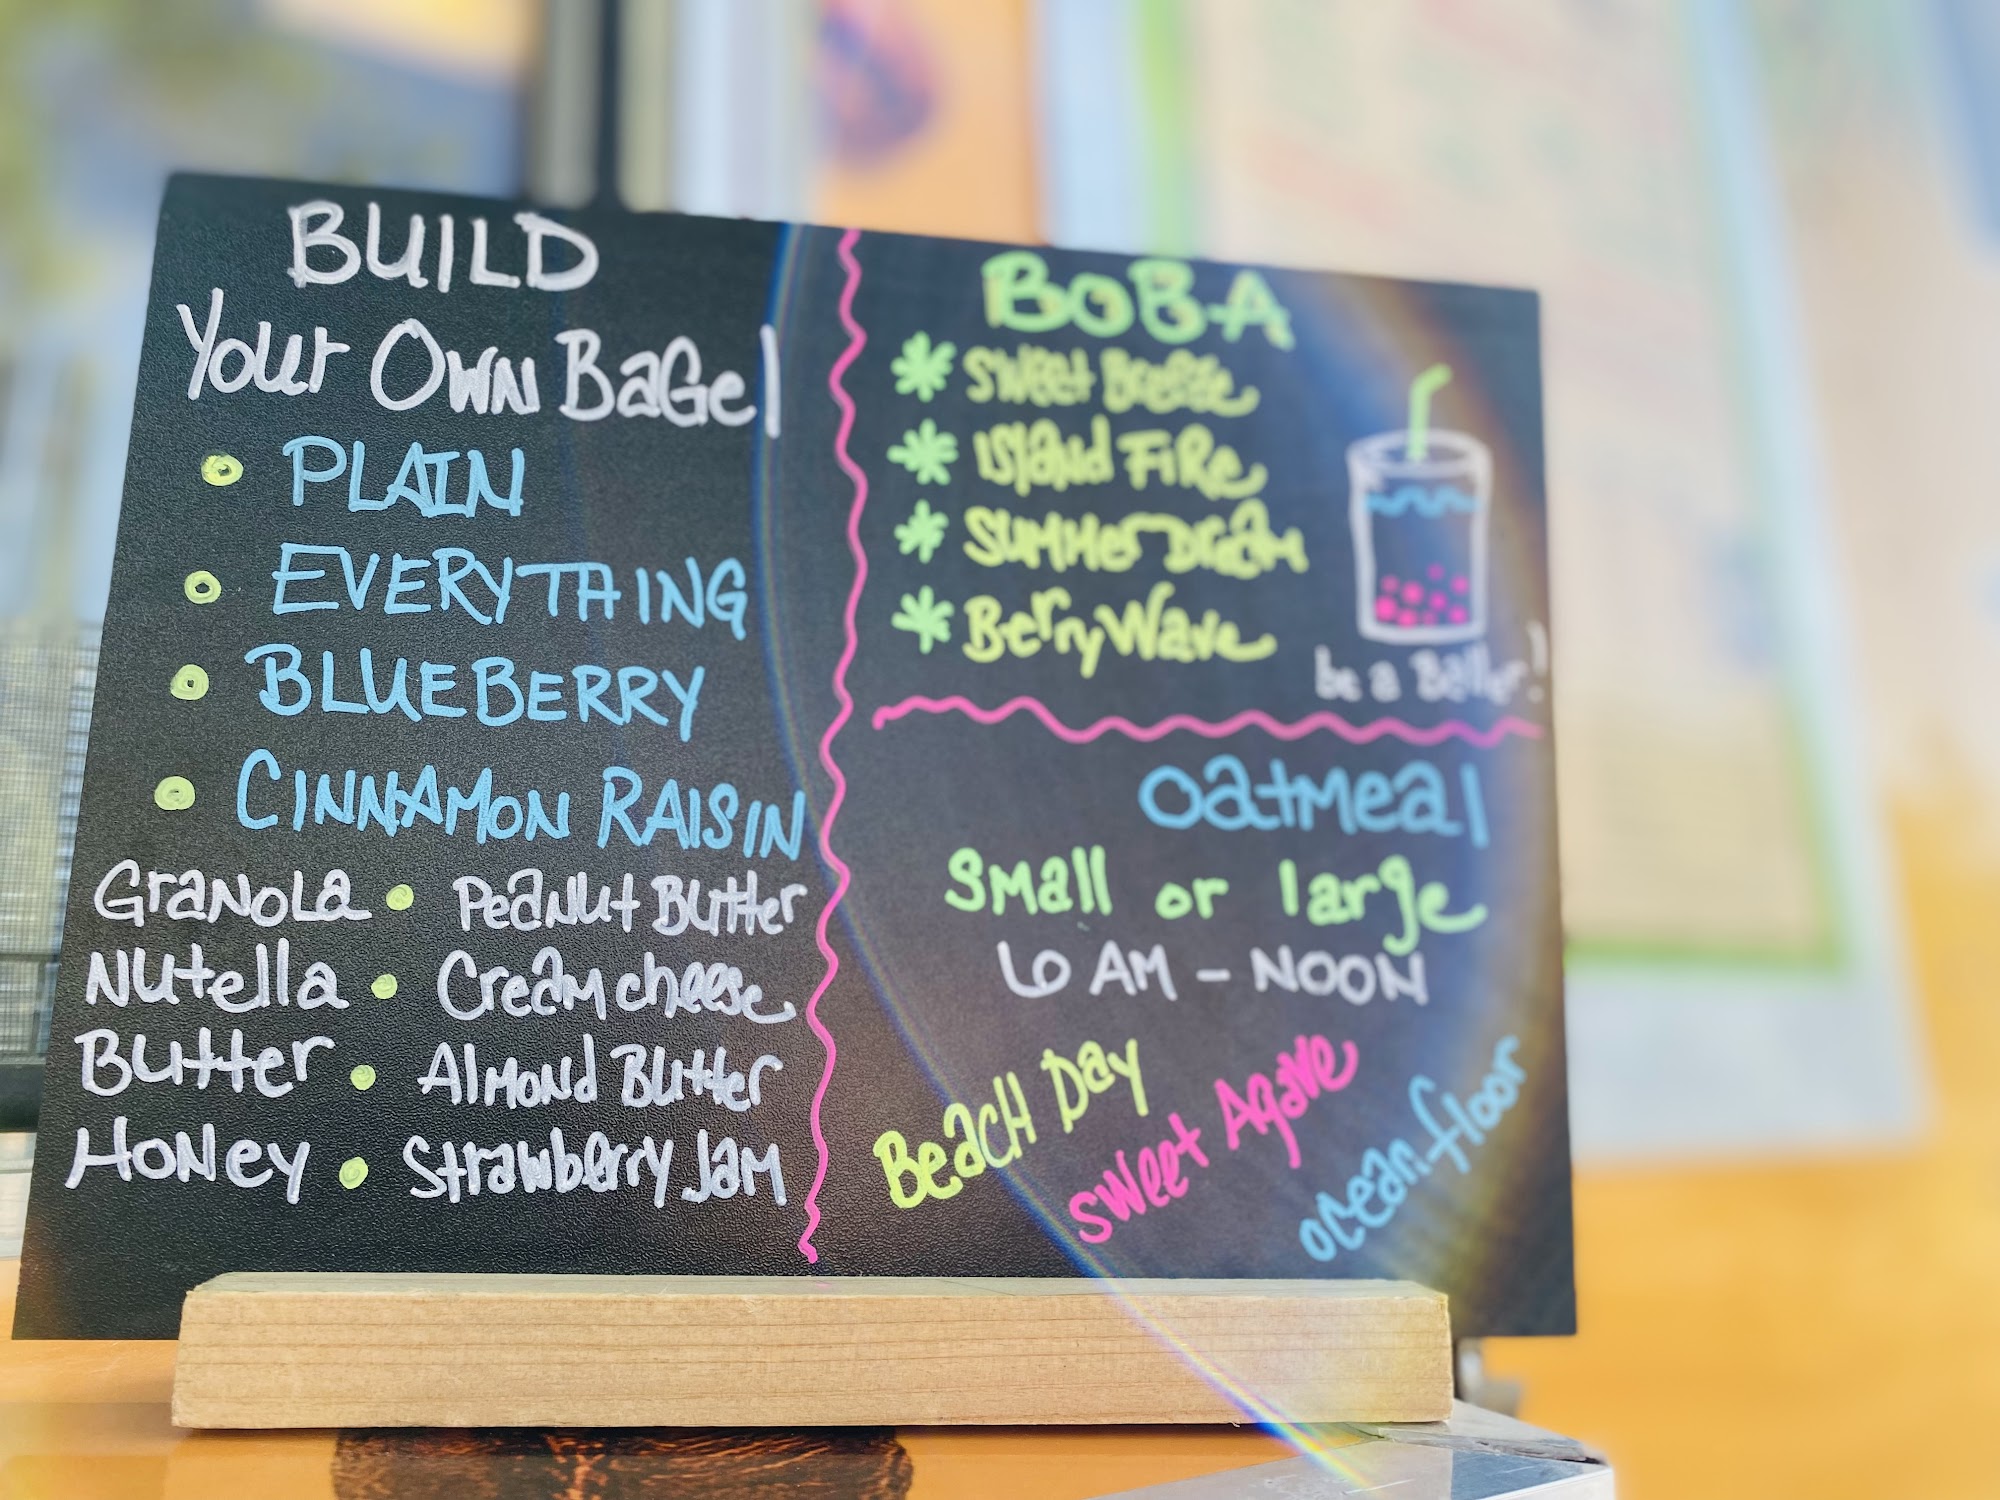 BUILD
Your Own BaGel
PLAIN
EVERYTHING
BLUEBERRY
CINNAMON RAISIN
GRaNoLa • PeaNut Butter
Nutella • Cream cheese
Butter • Almond Butter
Honey • Strawberry Jam
BoBA
Sweet Breeze
Island FiRe
Summer Dream
Berry Wave
be a Baller!
oatmeal
Small or large
6 AM - NOON
BeacH Day
Sweet Agave
ocean floor